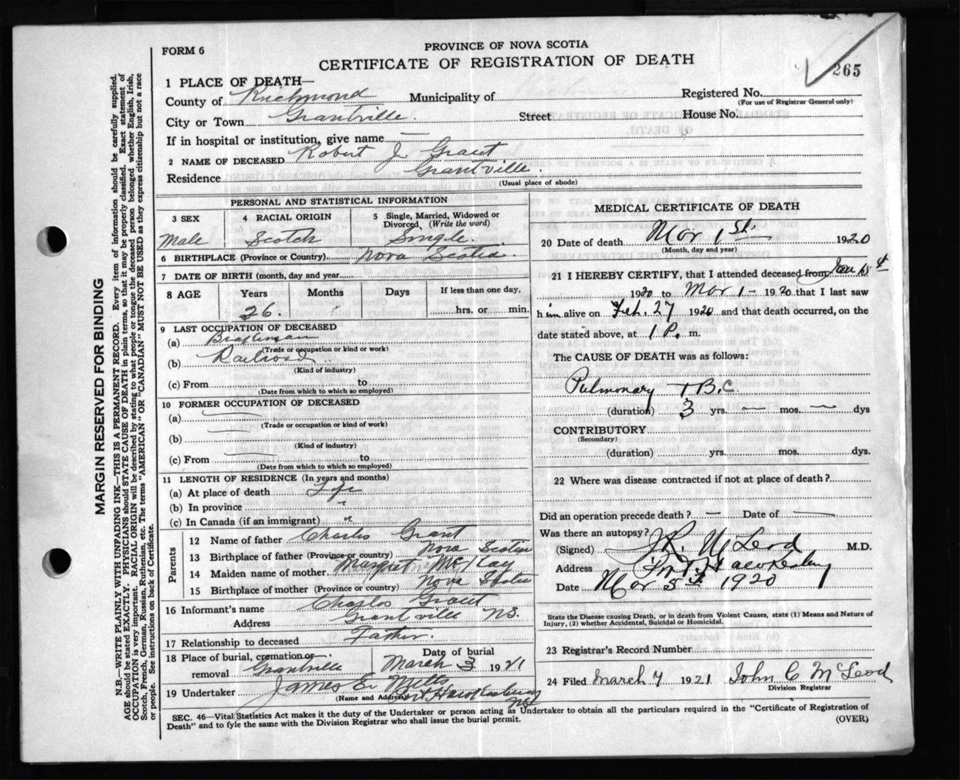 FORM 6
PROVINCE OF NOVA SCOTIA
CERTIFICATE OF REGISTRATION OF DEATH
265
1 PLACE OF DEATH—
County of Richmond Municipality of Registered No.
(For use of Registrar General only)
City or Town Grantville. Street House No.
If in hospital or institution, give name —
2 NAME OF DECEASED Robert J. Grant
Residence Grantville.
(Usual place of abode)
PERSONAL AND STATISTICAL INFORMATION
3 SEX 4 RACIAL ORIGIN 5 Single, Married, Widowed or Divorced, (Write the word)
Male Scotch Single.
6 BIRTHPLACE (Province or Country) Nova Scotia
7 DATE OF BIRTH (month, day and year)
8 AGE Years Months Days If less than one day,
26. hrs. or min.
9 LAST OCCUPATION OF DECEASED
(a) Brakeman
(Trade or occupation or kind or work)
(b) Railroad
(Kind of industry)
(c) From to
(Date from which to which so employed)
10 FORMER OCCUPATION OF DECEASED
(a) —
(Trade or occupation or kind of work)
(b) —
(Kind of industry)
(c) From — to
(Date from which to which so employed)
11 LENGTH OF RESIDENCE (In years and months)
(a) At place of death Life
(b) In province "
(c) In Canada (if an immigrant) "
Parents
12 Name of father Charles Grant
13 Birthplace of father (Province or country) Nova Scotia
14 Maiden name of mother Margret McKay
15 Birthplace of mother (Province or country) Nova Scotia
16 Informant's name Charles Grant
Address Grantville N.S.
17 Relationship to deceased Father.
18 Place of burial, cremation or removal Grantville Date of burial March 3 1921
19 Undertaker James E.
(Name and Address) Port Hawkesbury NS
MEDICAL CERTIFICATE OF DEATH
20 Date of death Mar 1st. 1920
(Month, day and year)
21 I HEREBY CERTIFY, that I attended deceased from Jan
1920 to Mar 1- 1920 that I last saw
him alive on Feb. 27 1920 and that death occurred, on
date stated above, at 1 P. m.
The CAUSE OF DEATH was as follows:
Pulmonary T B.C
(duration) 3 yrs. — mos. — dys
CONTRIBUTORY
(Secondary)
(duration) yrs. mos. dys.
22 Where was disease contracted if not at place of death?
Did an operation precede death? — Date of —
Was there an autopsy?
(Signed) McLeod M.D.
Address Pt Hawkesbury
Date Mar 5th 1920
State the Disease causing Death, or in death from Violent Causes, state (1) Means and Nature of
Injury, (2) whether Accidental, Suicidal or Homicidal.
23 Registrar's Record Number
24 Filed March 7 1921. John C McLeod
Division Registrar
SEC. 46—Vital Statistics Act makes it the duty of the Undertaker or person acting as Undertaker to obtain all the particulars required in the "Certificate of Registration of
Death" and to fyle the same with the Division Registrar who shall issue the burial permit. (OVER)
MARGIN RESERVED FOR BINDING
N.B.—WRITE PLAINLY WITH UNFADING INK—THIS IS A PERMANENT RECORD. Every item of information should be carefully supplied.
AGE should be stated EXACTLY. PHYSICIANS should STATE CAUSE OF DEATH in plain terms, so that it may be properly classified. Exact statement of
OCCUPATION is very important. RACIAL ORIGIN will be described by stating to what people or tongue the deceased person belonged whether English, Irish,
Scotch, French, German, Russian, Ruthenian, etc. The terms "AMERICAN" OR "CANADIAN" MUST NOT BE USED as they express citizenship but not a race
or people. See instructions on back of Certificate.